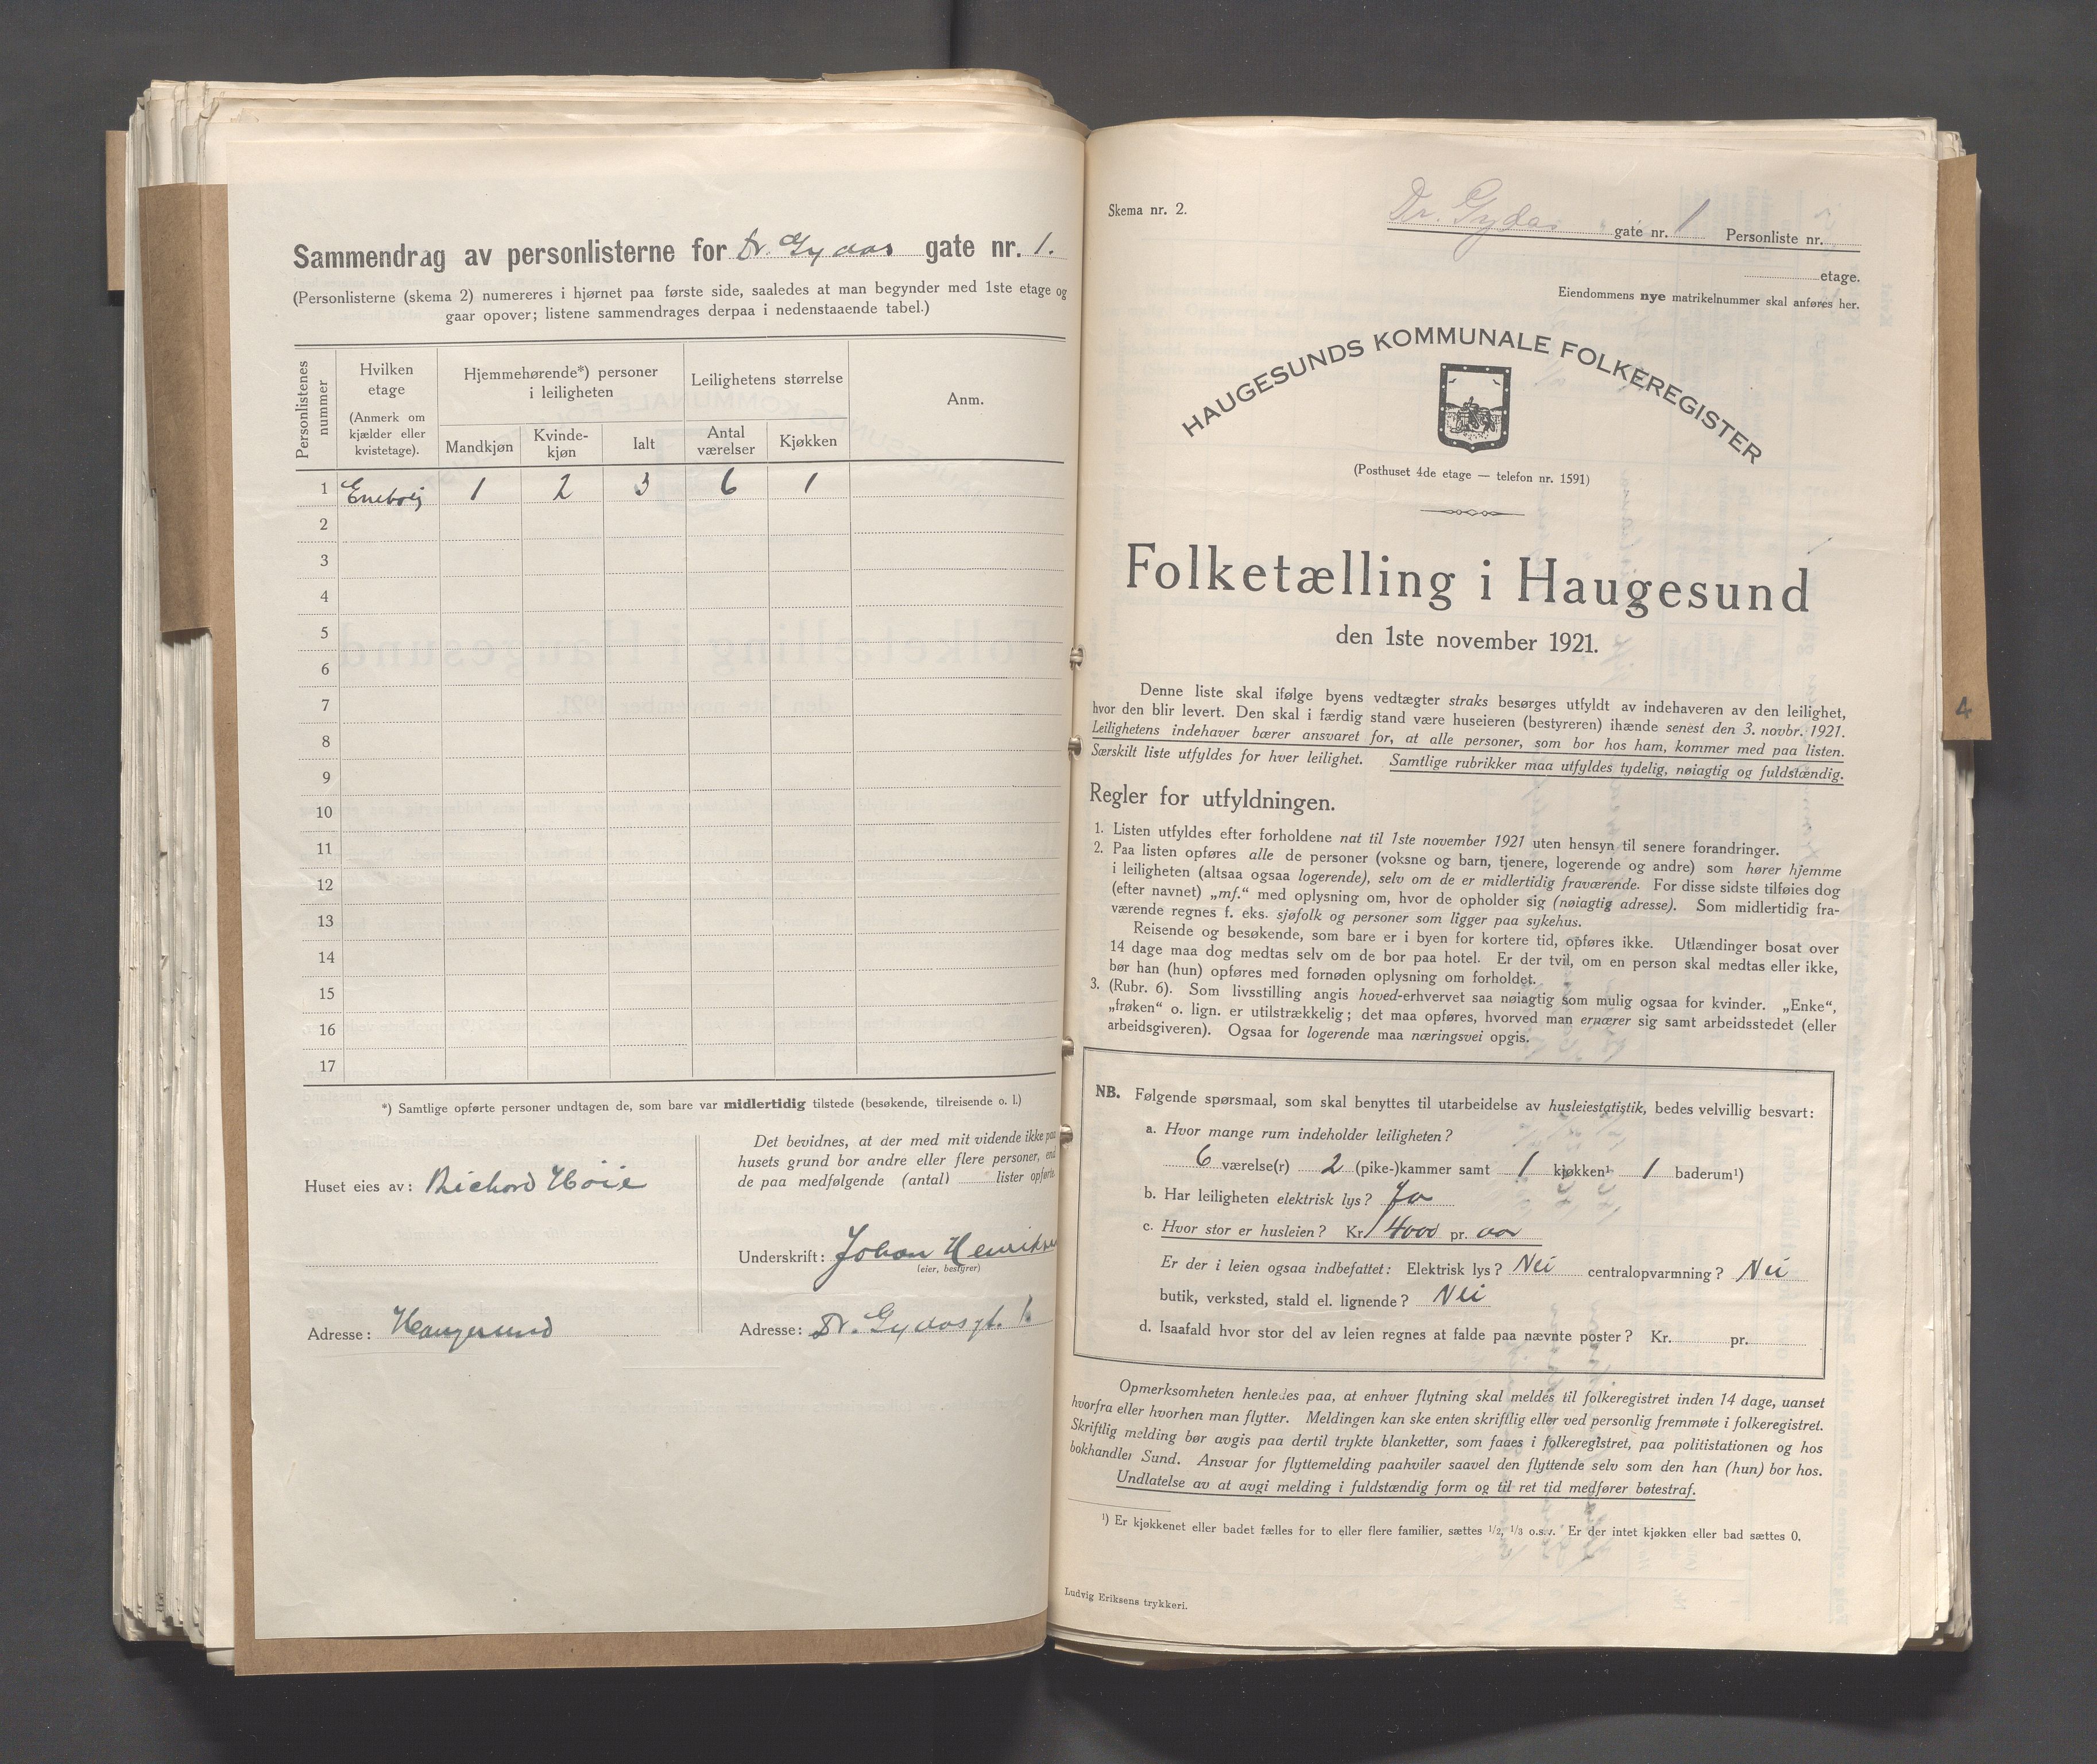 Sammendrag av personlisterne for Dr. Gydas gate nr. 1.
(Personlisterne (skema 2) numereres i hjørnet paa første side, saaledes at man begynder med 1ste etage og
gaar opover; listene sammendrages derpaa i nedenstaaende tabel.)
Personlistenes nummer
Hvilken etage
(Anmerk om kjælder eller kvistetage).
Hjemmehørende*) personer i leiligheten
Leilighetens størrelse
Anm.
Mandkjøn
Kvinde-kjøn
Ialt
Antal værelser
Kjøkken
1 Enebolig 1 2 3 6 1
2
3
4
5
6
7
8
9
10
11
12
13
14
15
16
17
*) Samtlige opførte personer undtagen de, som bare var midlertidig tilstede (besøkende, tilreisende o. l.)
Huset eies av: Richard Höie
Adresse: Haugesund
Det bevidnes, at der med mit vidende ikke paa
husets grund bor andre eller flere personer, end
de paa medfølgende (antal) lister opførte.
Underskrift: Johan Henriksen
(eier, bestyrer)
Adresse: Dr. Gydasgt. 1.
Skema nr. 2.
Dr. Gydas gate nr. 1 Personliste nr.
etage.
Eiendommens nye matrikelnummer skal anføres her.
HAUGESUNDS KOMMUNALE FOLKEREGISTER
(Posthuset 4de etage — telefon nr. 1591)
Folketælling i Haugesund
den 1ste november 1921.
Denne liste skal ifølge byens vedtægter straks besørges utfyldt av indehaveren av den leilighet,
hvor den blir levert. Den skal i færdig stand være huseieren (bestyreren) ihænde senest den 3. novbr. 1921.
Leilighetens indehaver bærer ansvaret for, at alle personer, som bor hos ham, kommer med paa listen.
Særskilt liste utfyldes for hver leilighet. Samtlige rubrikker maa utfyldes tydelig, nøiagtig og fuldstændig.
Regler for utfyldningen.
1. Listen utfyldes efter forholdene nat til 1ste november 1921 uten hensyn til senere forandringer.
2. Paa listen opføres alle de personer (voksne og barn, tjenere, logerende og andre) som hører hjemme
i leiligheten (altsaa ogsaa logerende), selv om de er midlertidig fraværende. For disse sidste tilføies dog
(efter navnet) „mf.“ med oplysning om, hvor de opholder sig (nøiagtig adresse). Som midlertidig fra-
værende regnes f. eks. sjøfolk og personer som ligger paa sykehus.
Reisende og besøkende, som bare er i byen for kortere tid, opføres ikke. Utlændinger bosat over
14 dage maa dog medtas selv om de bor paa hotel. Er der tvil, om en person skal medtas eller ikke,
bør han (hun) opføres med fornøden oplysning om forholdet.
3. (Rubr. 6). Som livsstilling angis hoved-erhvervet saa nøiagtig som mulig ogsaa for kvinder. „Enke“,
„frøken“ o. lign. er utilstrækkelig; det maa opføres, hvorved man ernærer sig samt arbeidsstedet (eller
arbeidsgiveren). Ogsaa for logerende maa næringsvei opgis.
NB. Følgende spørsmaal, som skal benyttes til utarbeidelse av husleiestatistik, bedes velvillig besvart:
a. Hvor mange rum indeholder leiligheten?
6 værelse(r) 2 (pike-)kammer samt 1 kjøkken¹ 1 baderum¹)
b. Har leiligheten elektrisk lys? Ja
c. Hvor stor er husleien? Kr. 4000 pr. aar
Er der i leien ogsaa indbefattet: Elektrisk lys? Nei centralopvarmning? Nei
butik, verksted, stald el. lignende? Nei
d. Isaafald hvor stor del av leien regnes at falde paa nævnte poster? Kr. pr.
Opmerksomheten henledes paa, at enhver flytning skal meldes til folkeregistret inden 14 dage, uanset
hvorfra eller hvorhen man flytter. Meldingen kan ske enten skriftlig eller ved personlig fremmøte i folkeregistret.
Skriftlig melding bør avgis paa dertil trykte blanketter, som faaes i folkeregistret, paa politistationen og hos
bokhandler Sund. Ansvar for flyttemelding paahviler saavel den flyttende selv som den han (hun) bor hos.
Undlatelse av at avgi melding i fuldstændig form og til ret tid medfører bøtestraf.
¹) Er kjøkkenet eller badet fælles for to eller flere familier, sættes 1/2, 1/3 o.s.v. Er der intet kjøkken eller bad sættes 0.
Ludvig Eriksens trykkeri.
4